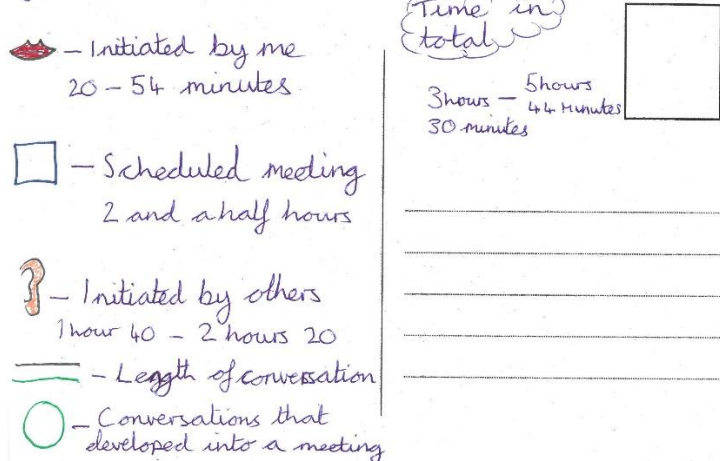 – Initiated by me
20 – 54 minutes
– Scheduled meeting
2 and a half hours
– Initiated by others
1 hour 40 – 2 hours 20
– Length of conversation
– Conversations that
developed into a meeting
Time in
total
3hours – 5hours
44 Minutes
30 minutes